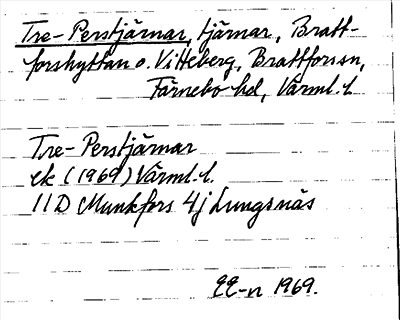 Tre-Perstjärnar, tjärnar, Bratt-
forshyttan o. Vitteberg, Brattfors sn,
Färnebo hd, Värml. l.
Tre-Perstjärnar
ek (1969) Värml. l.
11D Munkfors 4j Lungsnäs
EE-n 1969.